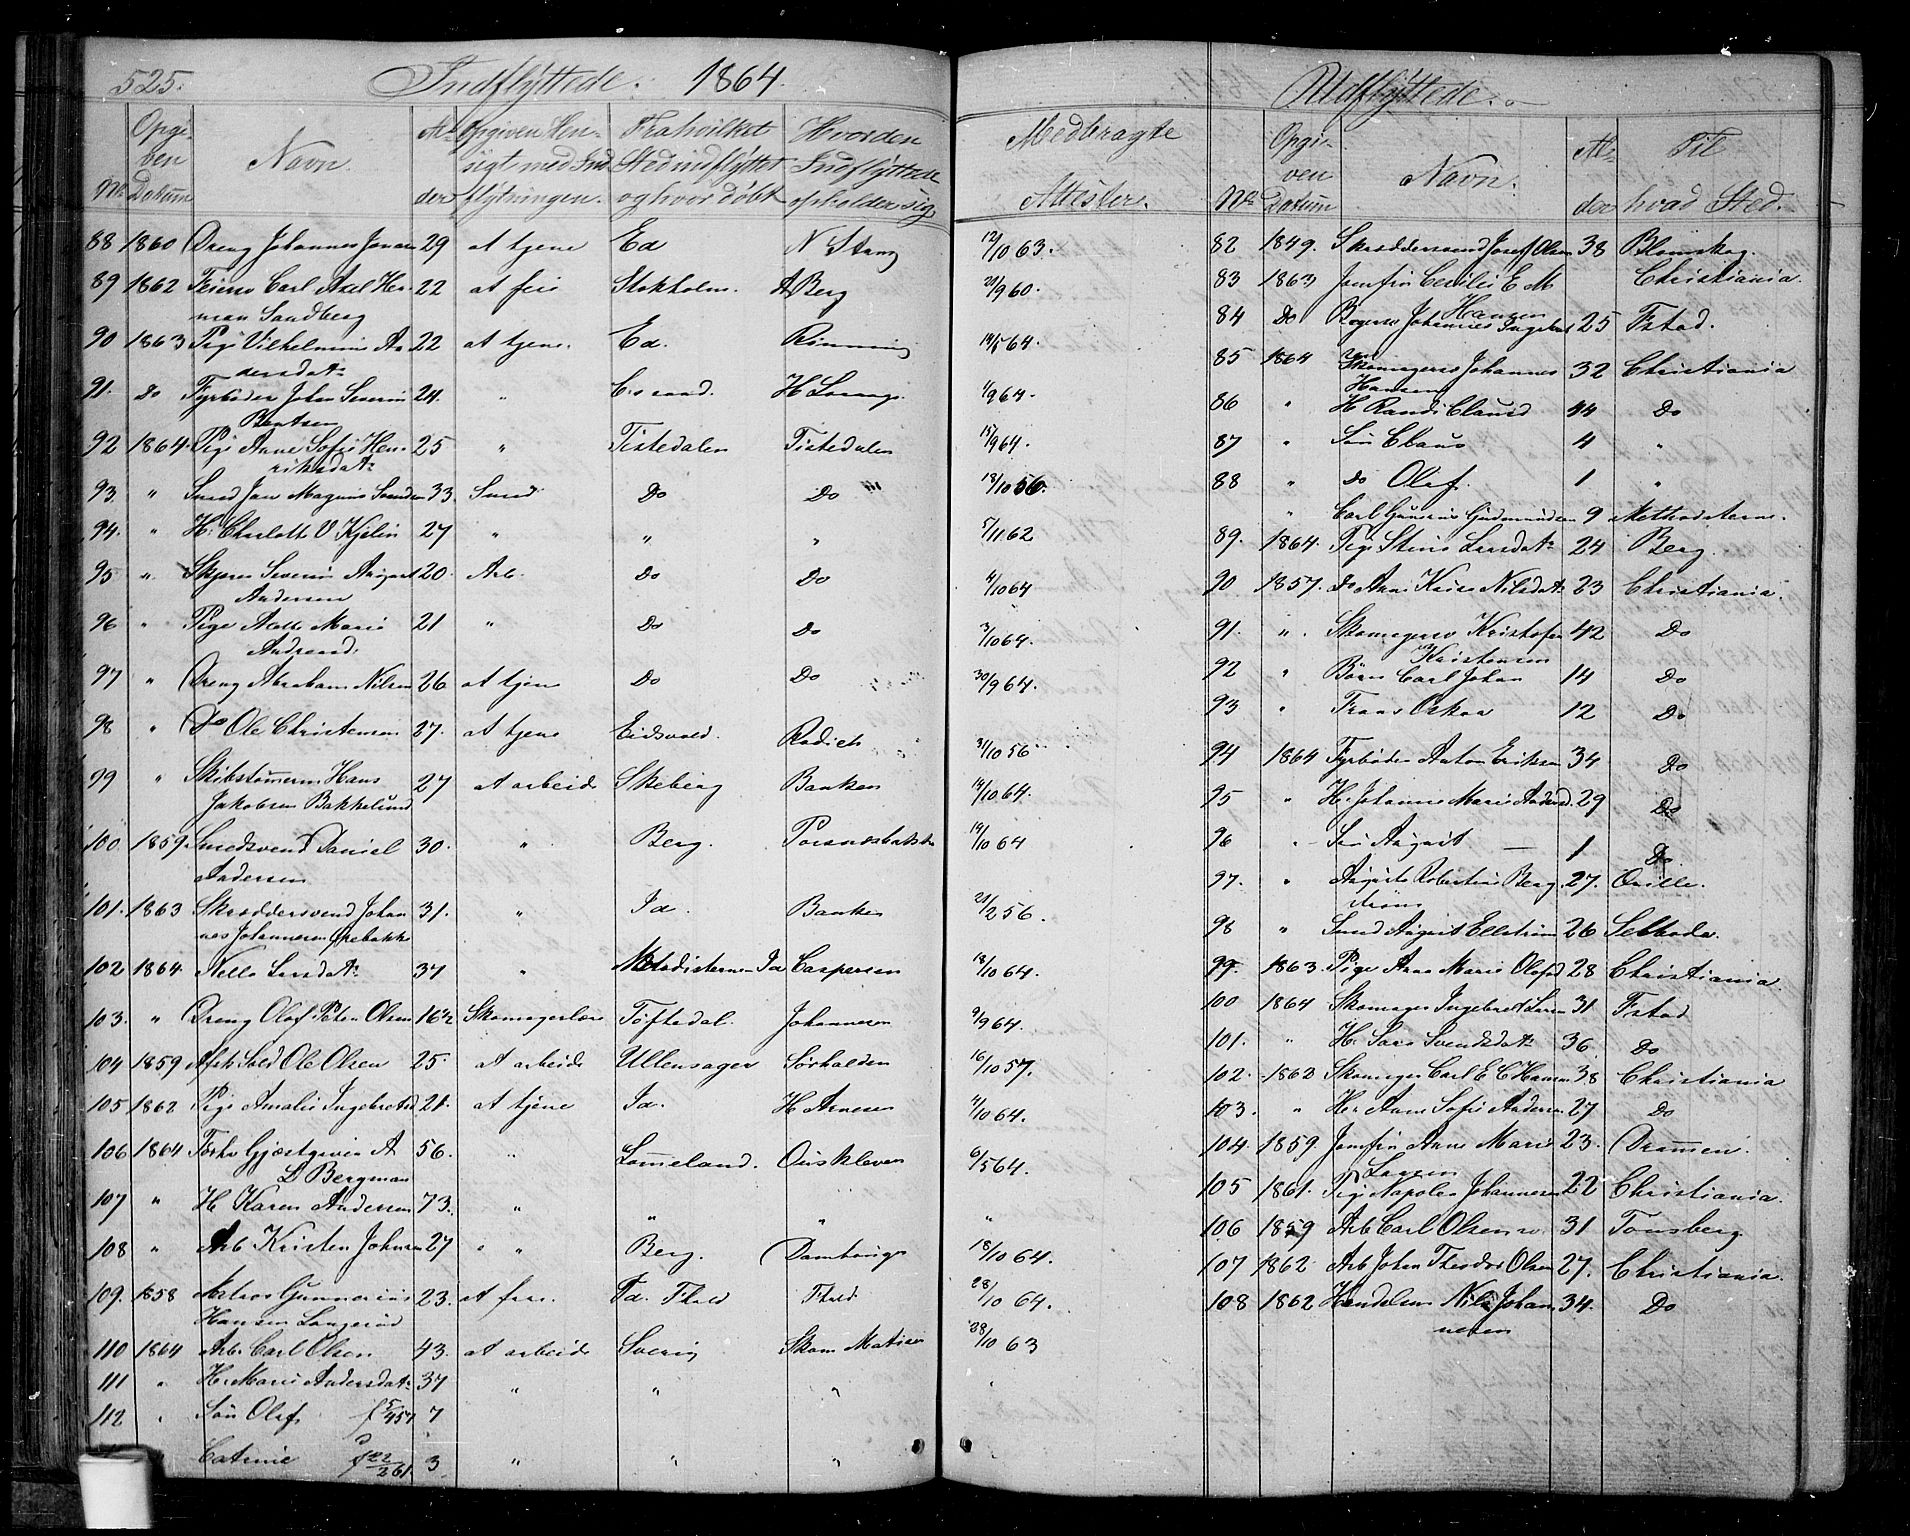 525. Indflyttede. 1864.
No Opgiven Datum Navn. Alder Opgiven Hensigt med Indflytningen. Fra hvilket Sted indflyttet og hvor døbt Hvor den Indflyttede opholder sig Medbragte Attester.
88 1860 Dreng Johannes Jonsen 29 at tjene Ed N Stang 12/10 63.
89 1862 Feiersv Carl Axel Her- 22 at feie Stokholm. A Berg 21/9 60.
man Sandberg
90 1863 Pige Vilhelmine An 22 at tjene. Ed. Rønning 14/5 64.
dersdatr
91. Do Fyrbøder Johan Severin 24. " H Lorange 1/9 64.
Bentsen
92 1864 Pige Anne Sofie Hen- 25 " Tistedalen Tistedalen 15/9 64.
riksdatr
93 " Smed Jan Magnus Svendsen 33. Smed Do Do 13/10 56.
94. " H. Charlotte V Kjelin 27 " " " 5/11 62
95 " Skjærer Severin August 20. Arb. Do Do 4/10 64
Andersen
96 " Pige Mathe Marie 21 " Do Do 3/10 64.
Andreasd.
97 " Dreng Abraham Nilsen 26 at tjene Do Do 30/9 64.
98 " Do Ole Christensen 27. at tjene Eidsvold. Radich 31/10 56
99 " Skibstømerm Hans 27 at arbeide Skeberg Banken 14/10 64.
Jakobsen Bakkelund
100 1859 Smedsvend Daniel 30. " Berg. 19/10 64
Andersen
101. 1863 Skræddersvend Johan 31. " Id. Banken 21/2 56.
nes Johannesen Grebakke
102 1864. Nelle Larsdatr 37 " Metodisterne Id Caspersen 18/10 64.
103. " Dreng Olof Peter Olsen 16½ Skomagerlære Tøftedal. Johannesen 9/9 64.
104 1859 Afsk Sold Ole Olsen 25. at arbeide Ullensager Sørhalden 16/10 57.
105 1862 Pige Amalie Ingebretsd 21. at tjene Id. H Arnesen 11/10 64.
106 1864 Forhv Gjæstgiver A 56. " Lømeland. Ouskleven 6/5 64.
L Bergman
107 " H Karen Andersen 73. " " " "
108 " Arb Kristen Johnsen 27 " Berg. Damhaugs 18/10 64.
109. 1858 Matros Gunnerius 23. at fare. Id. Fhald Fhald. 28/10 64.
Hansen Langerød
110 1864 Arb. Carl Olsen 43. at arbeide Sverig Skom Matisen 28/10 63
111 " H. Marie Andersdatr 37 " " " "
112 " Søn Olof f 5/4 57 7
Catrine f 22/2 61 3 " " "
Udflyttede.
No Opgiven Datum Navn. Alder Til hvad Sted.
82 1849. Skræddersvend Josef Olsen 38 Blomskog.
83 1863 Jomfru Cecilie E M Christiania.
Hansen
84 Do Bøgersv Johannes Ingebret 25 Fstad.
sen
85 1864 Skomagersv Johannes 32 Christiania
Hansen
86 " H Randi Clausd 44 Do
87 " Søn Claus 4 "
88 " Do Olaf. 1 "
" Carl Gunerius Gudmundsen 9 Methodisterne.
89. 1864. Pige Stine Larsdatr 24 Berg.
90 1857. Do Anne Kirse Nilsdatr 23 Christiania.
91. " Skomagersv Kristofer 42 Do
Kristensen
92 " Børn Carl Johan 14 Do
93 " Frans Oskar 12 Do
94 1864 Fyrbøder Anton Eriksen 34 Do
95 " H. Johanne Marie Andersd. 29 Do
96 " Søn August 1 Do
97. " Augusta Robertine Berg 27. Qville.
strøm
98 " Smed August Ellstrøm 26 Setboda.
99. 1863. Pige Ane Marie Olofsd 28 Christiania.
100 1864 Skomager Ingebret Larsen 31 Fstad
101. " H. Sara Svendsdatr 36 Do
102. 1862 Skomager Carl E C Hansen 38 Christiania
103. " H. Anne Sofie Andersen 27 Do
104. 1859 Jomfru Anne Marie 23. Drammen.
Larsen
105 1861. Pige Napolea Johannesen 22 Christiania.
106 1859 Arb Carl Olsen 31 Tønsberg
107 1862 Arb Johan Theodor Olsen 27. Christiania.
108 1862 Handelsm Nils Johan 34. Do
nesen